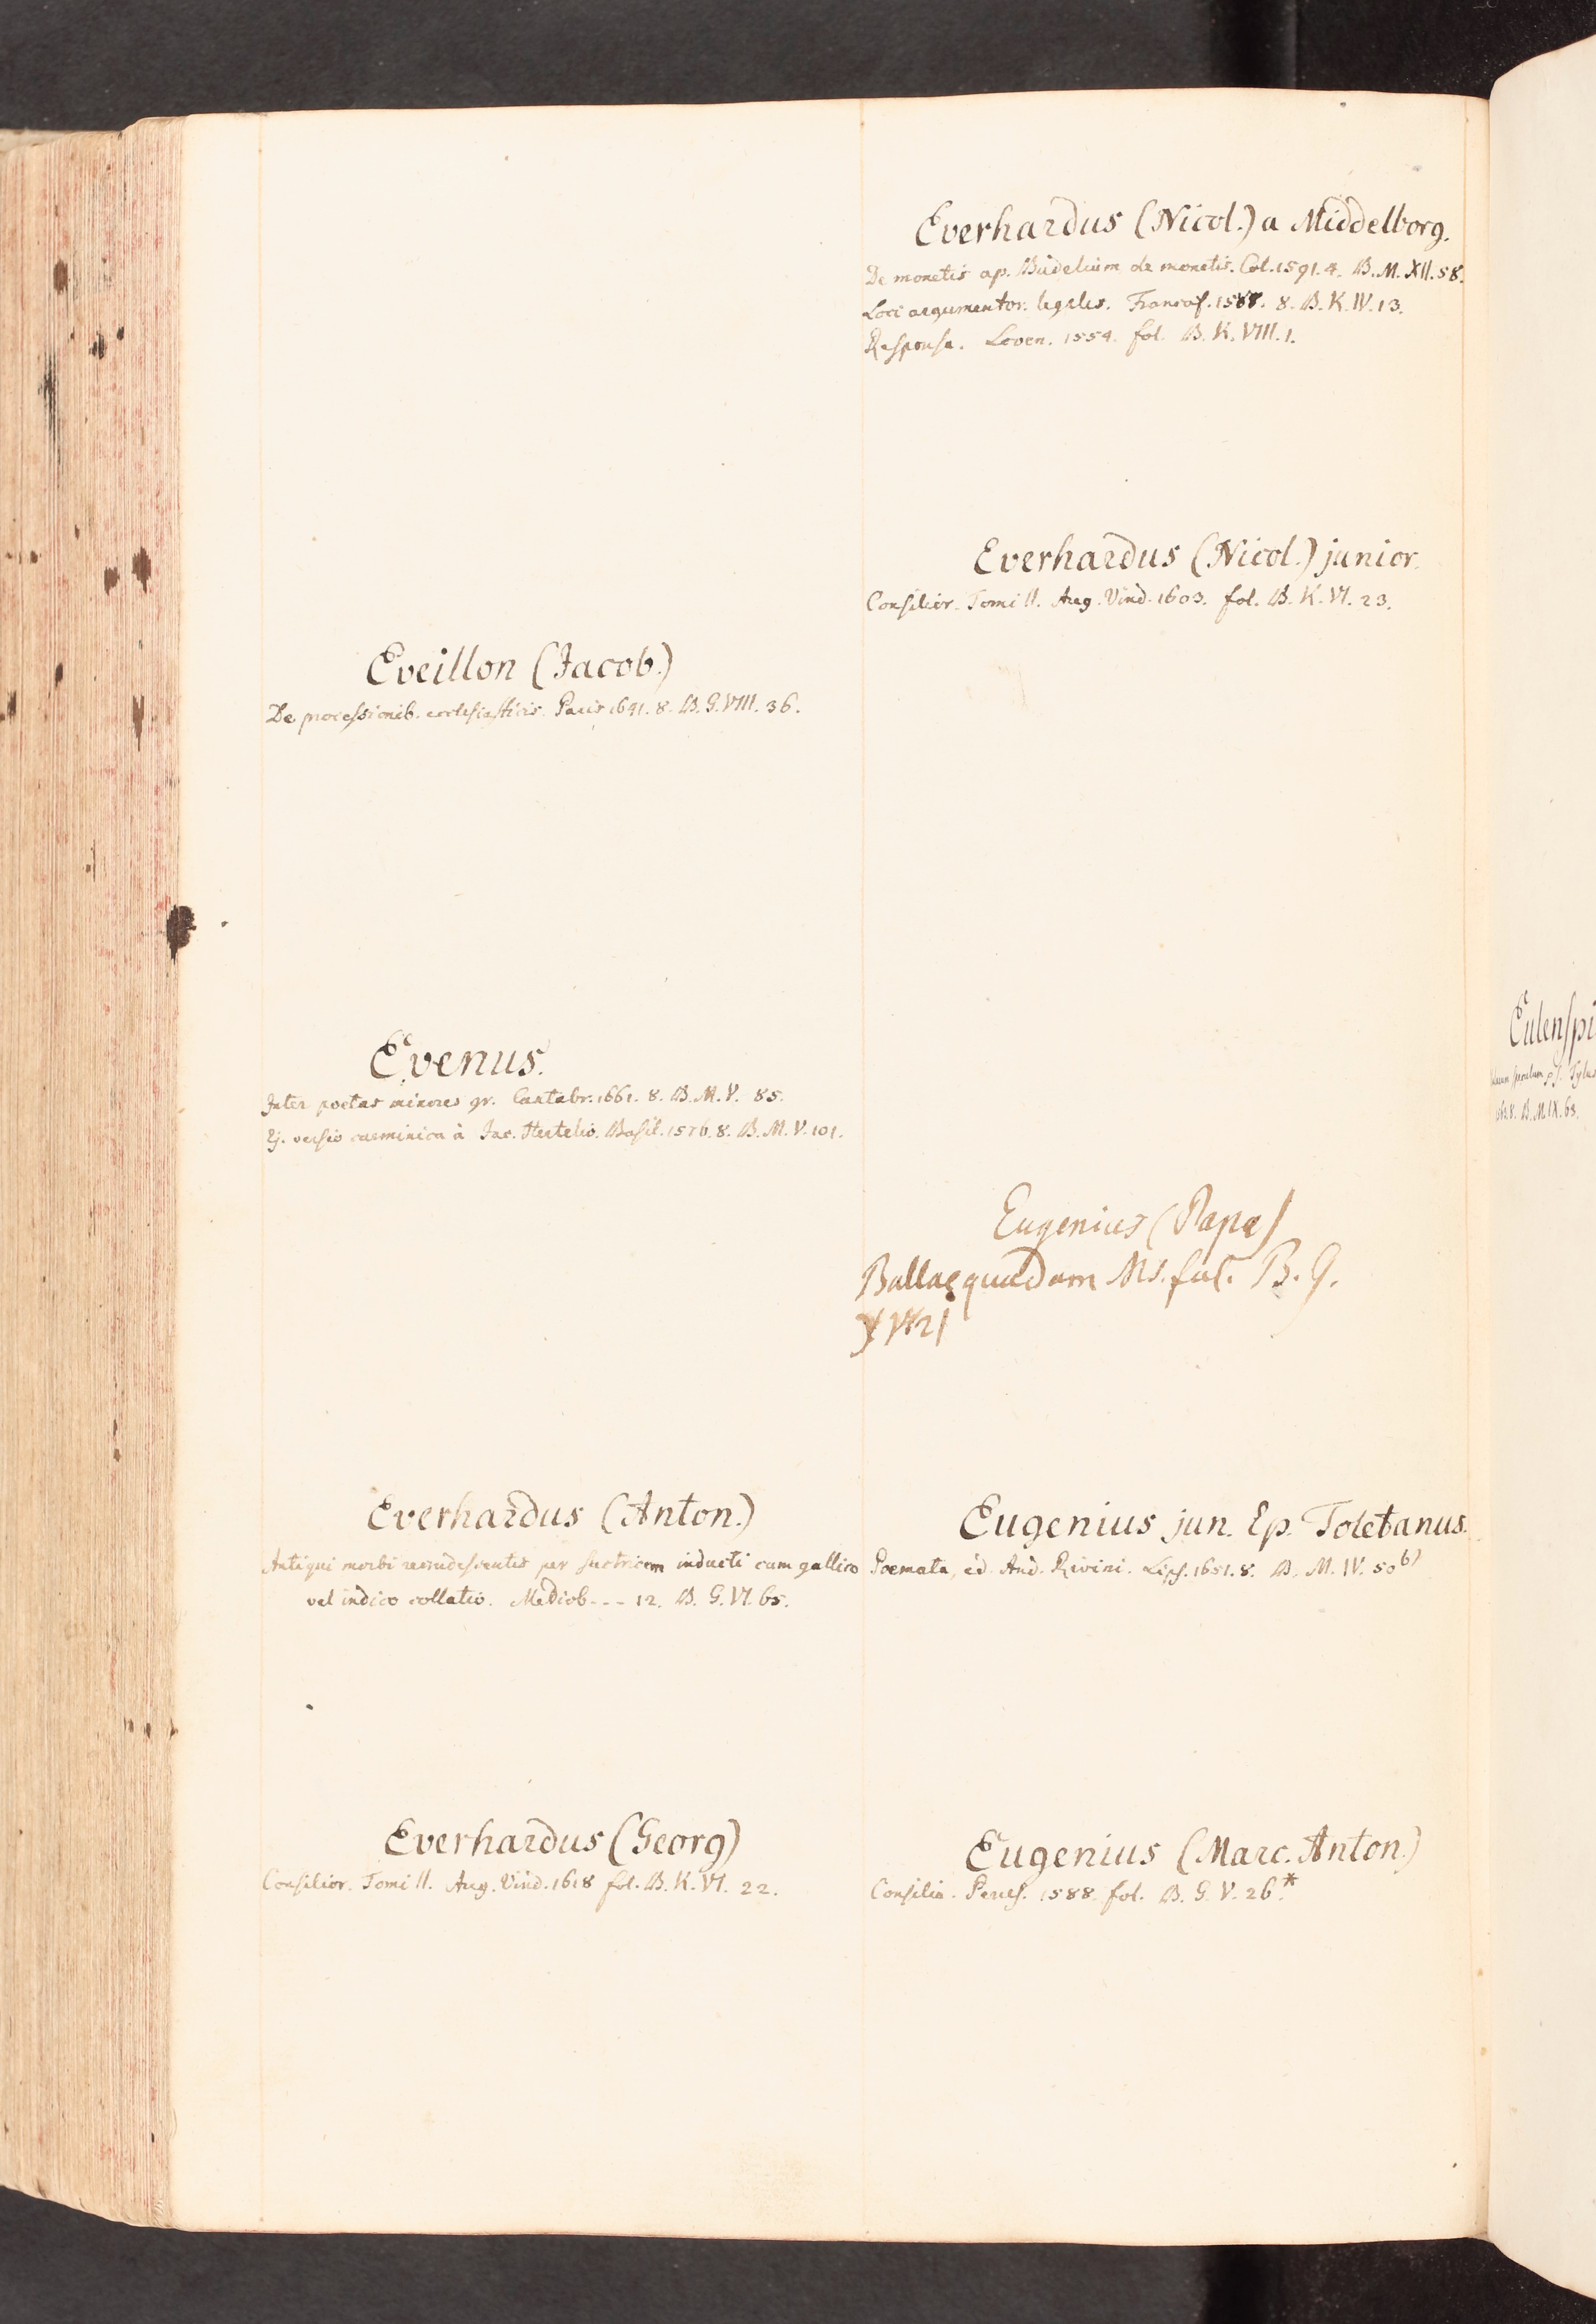 Eveillon (Jacob.)
De processionib. ecclesiasticis. Paris 1641. 8. B. G. VIII. 36.
Evenus.
Inter poetas minores gr. Cantabr. 1661. 8. B. M. V. 85.
Ej. versio carminica à Jac. Hertelio. Basil. 1576. 8. B. M. V. 101.
Everhardus (Anton.)
Antiqui morbi recrudescentis per suctricem inducti cum gallico
vel indico collatio. Mediob - - - 12. B. G. VI. 65.
Everhardus (Georg)
Consilior. Tomi II. Aug. Vind. 1618 fol. B. K. VI. 22.
Everhardus (Nicol.) a Middelborg.
De monetis ap. Budelium de monetis. Col. 1591. 4. B. M. XII. 58.
Loci argumentor. legales. Francof. 1587. 8. B. K. IV. 13.
Responsa. Loven. 1554. fol. B. K. VIII. 1.
Everhardus (Nicol.) junior.
Consilior. Tomi II. Aug. Vind. 1603. fol. B. K. VI. 23.
Eugenius (Papa)
Bullae quaedam Ms. fol. B. G.
Eugenius jun. Ep. Toletanus.
Poemata, ed. And. Rivini. Lips. 1651. 8. B. M. IV. 50 b)
Eugenius (Marc. Anton.)
Consilia. Perus. 1588. fol. B. G. V. 26.*
Eulenspi
B. M. IX. 63.